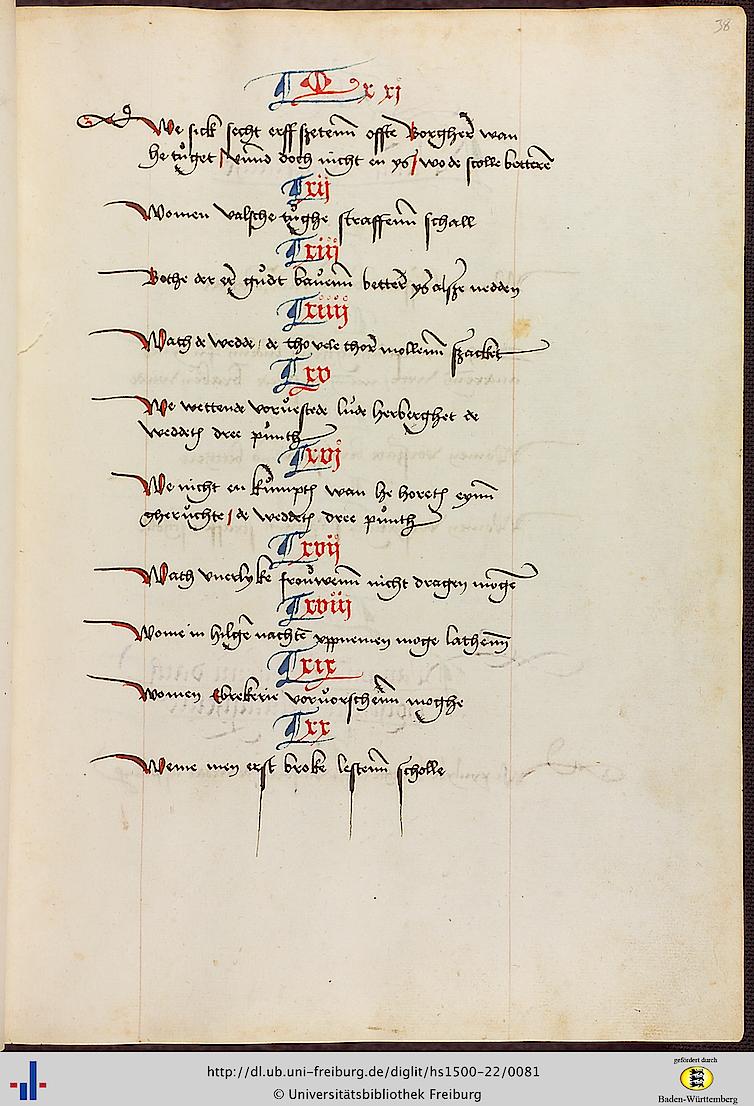 38
xj
We sick secht erffszetenn offte Borgher wan
he tuget / vnnd doch nicht en ys / wo de scolle betteren
xij
Women valsche tughe straffenn schall
xiij
Bothe der er gudt bauenn better ys alsze wedden
xiiij
Wath de wedde de tho vele thor mollenn szacket
xv
We wettende voruestede lude herberghet de
weddeth dree punth
xvj
We nicht en kumpth wan he horeth eynn
gheruchte / de weddeth dree punth
xvij
Wath vnerlyke frouwenn nicht dragen moge
xviij
Wome in hilgen nachte vppnemen moge lathenn
xix
Women Ebrekerie voruorschenn moghe
xx
Weme men erst broke lestenn scholle
http://dl.ub.uni-freiburg.de/diglit/hs1500-22/0081
© Universitätsbibliothek Freiburg
gefördert durch
Baden-Württemberg